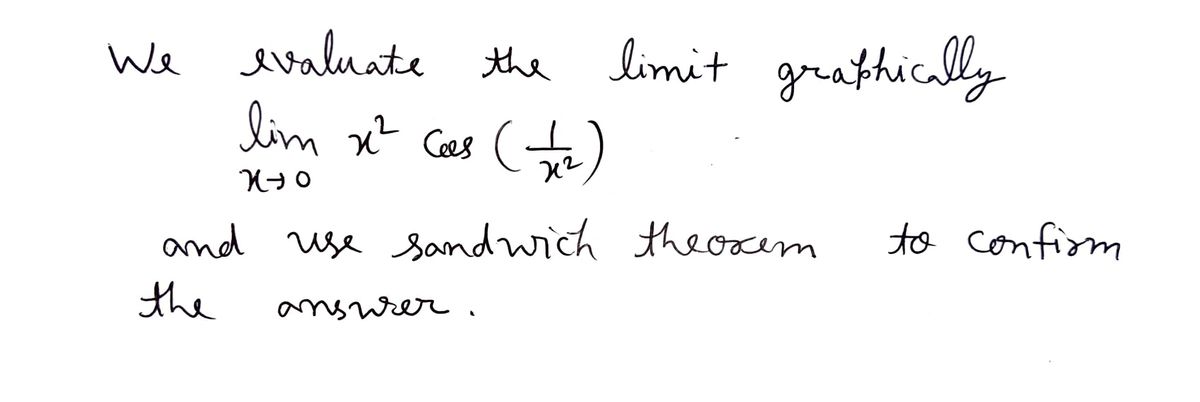 We evaluate the limit graphically
lim x² cos (1/x²)
x→0
and use sandwich theorem to confirm
the answer.